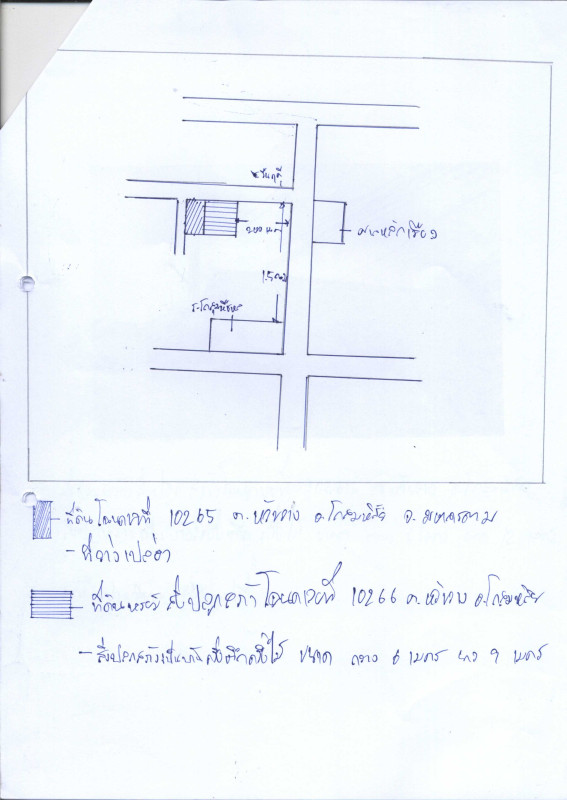 200 เมตร
1.5 กม
ที่ดินโฉนดเลขที่ 10265 ต.หัวขวาง อ.โกสุมพิสัย จ.มหาสารคาม
- ที่ว่างเปล่า
ที่ดินพร้อมสิ่งปลูกสร้างโฉนดเลขที่ 10266 ต.หัวขวาง อ.โกสุมพิสัย
- สิ่งปลูกสร้างเป็นบ้านครึ่งตึกครึ่งไม้ ขนาด กว้าง 6 เมตร ยาว 9 เมตร